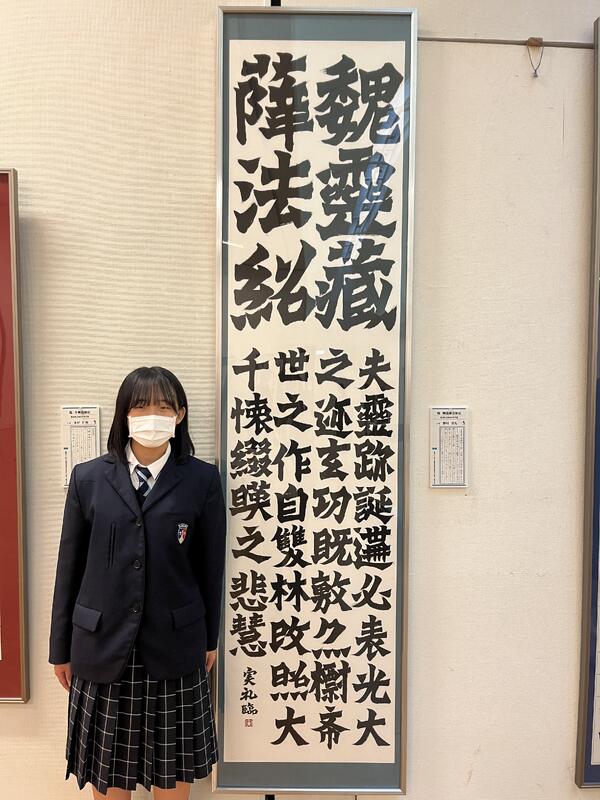 魏靈藏
薛法紹
夫靈跡誕遘必表光大
之迹玄功既敷亦標希
世之作自雙林改照大
千懷綴暎之悲慧
実礼臨